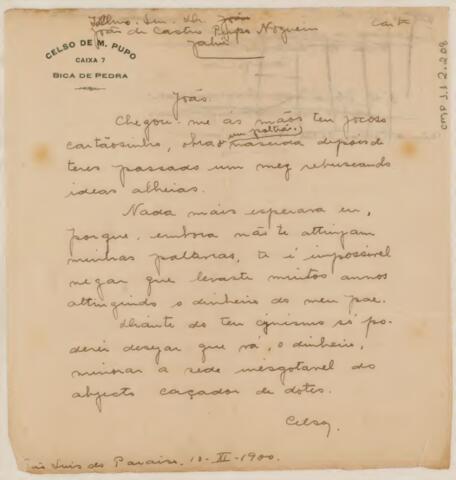 Illmo. Snr. Dr. João
João de Castro Pupo Nogueira
Jahú
Carta
CELSO DE M. PUPO
CAIXA 7
BICA DE PEDRA
CMP 2.1.2.208
João.
Chegou-me ás mãos teu jocoso
cartãosinho, obra nascida depois de
teres passado um mez rebuscando
ideas alheias.
Nada mais esperava eu,
porque, embora não te attinjam
minhas palavras, te é impossivel
negar que levaste muitos annos
attingindo o dinheiro do meu pae.
Diante do teu cynismo só po-
derei desejar que vá, o dinheiro,
minorar a sede inesgotavel do
abjecto caçador de dotes.
Celso.
São Luis do Paraiso, 10-XI-1900.